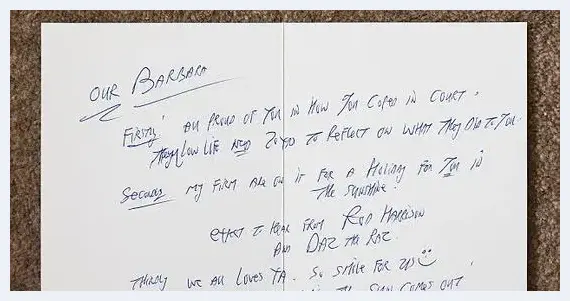 OUR BARBARA
Firstly! All PROUD OF YOU IN HOW YOU COPED IN COURT.
LOW LIFE TO REFLECT ON WHAT THEY DID TO YOU.
Secondly MY FIRM ARE ON IT FOR A HOLIDAY FOR YOU IN
THE SUNSHINE!
EXPECT TO HEAR FROM ROD HARRISON
AND DAZ THE RAZ.
THIRDLY WE ALL LOVES YA. SO SMILE FOR US
THE SUN COMES OUT